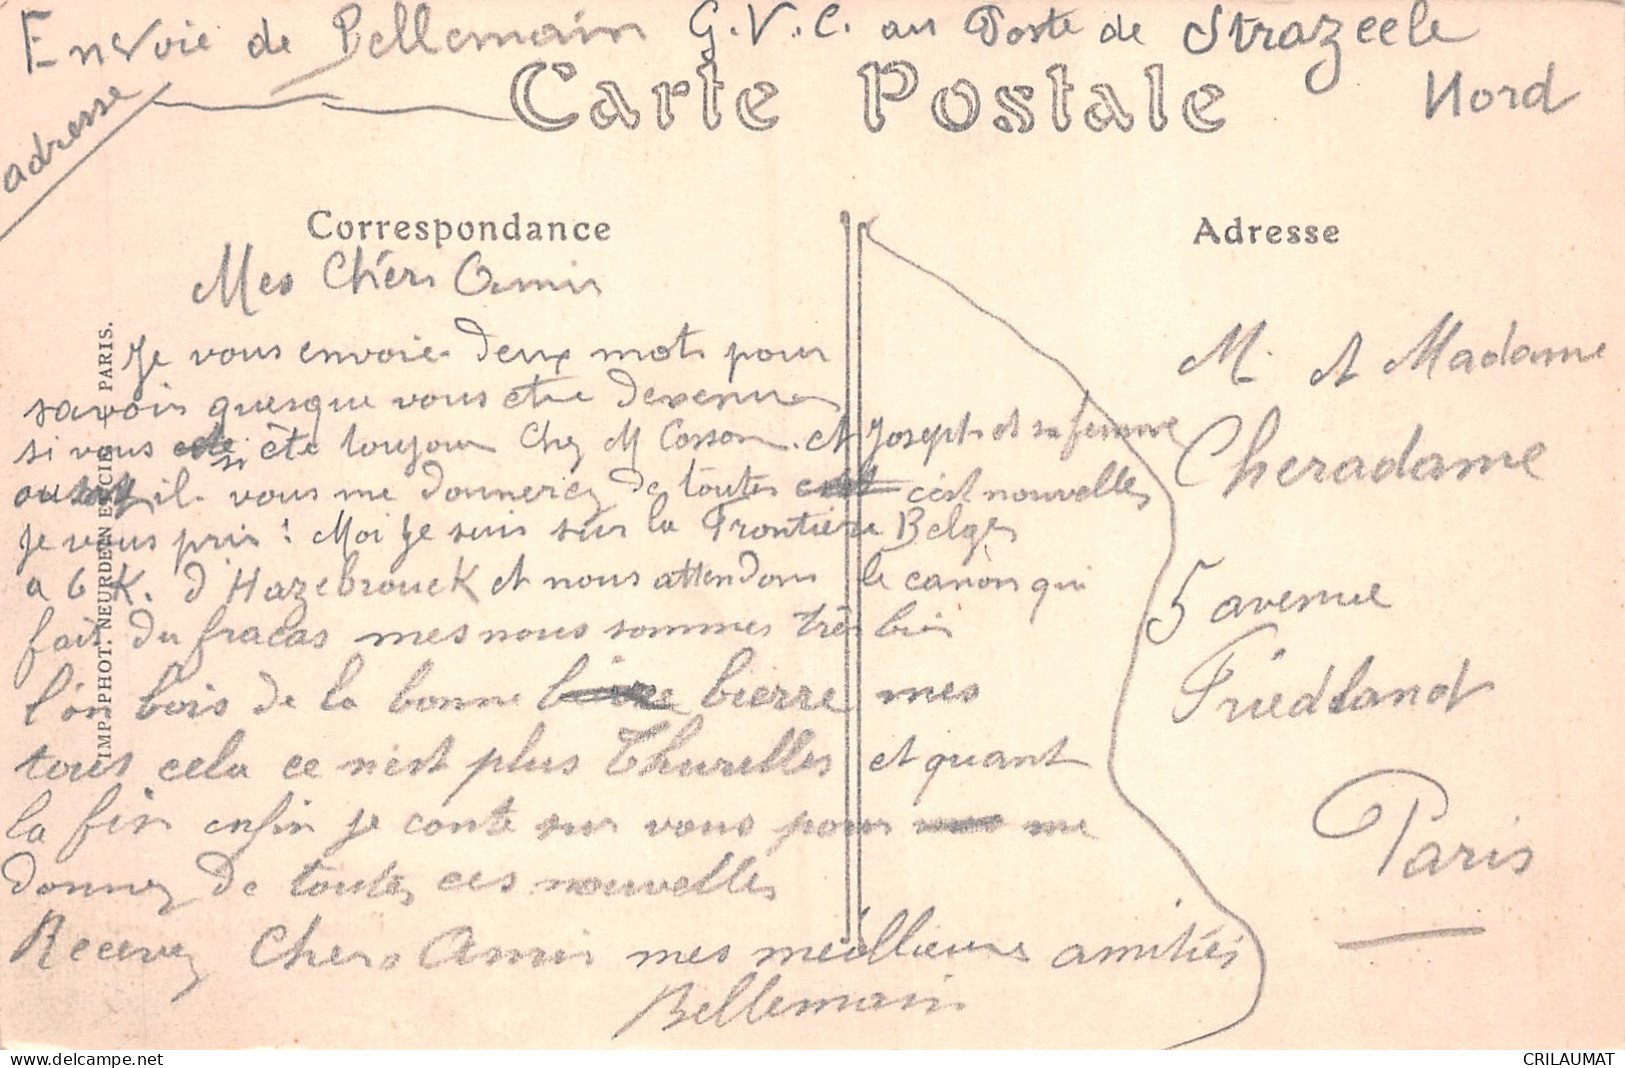 Envoie de Bellemain G.V.C. au Poste de Strazeele
Nord
adresse
Carte Postale
Correspondance
Adresse
Mes Chèrs Amis
Je vous envoie deux mots pour
savoir quesque vous etre devenus
si vous ète toujour Chez M Cosson et Joseph et sa femme
ou il vous me donnerez de toutes c'est nouvelles
je vous pris : Moi je suis sur la Frontière Belge
a 6 K. d'Hazebrouck et nous attendons le canon qui
fait du fracas mes nous sommes très bien
l'on bois de la bonne bierre mes
tous cela ce n'est plus Thurelles et quant
la fin enfin je conte sur vous pour me
donnez de toutes ces nouvelles
Recevez Chers Amis mes meillieures amitiés
Bellemain
M. et Madame
Cheradame
5 avenue
Friedland
Paris
IMP. PHOT. NEURDEIN ET CIE PARIS.
CRILAUMAT